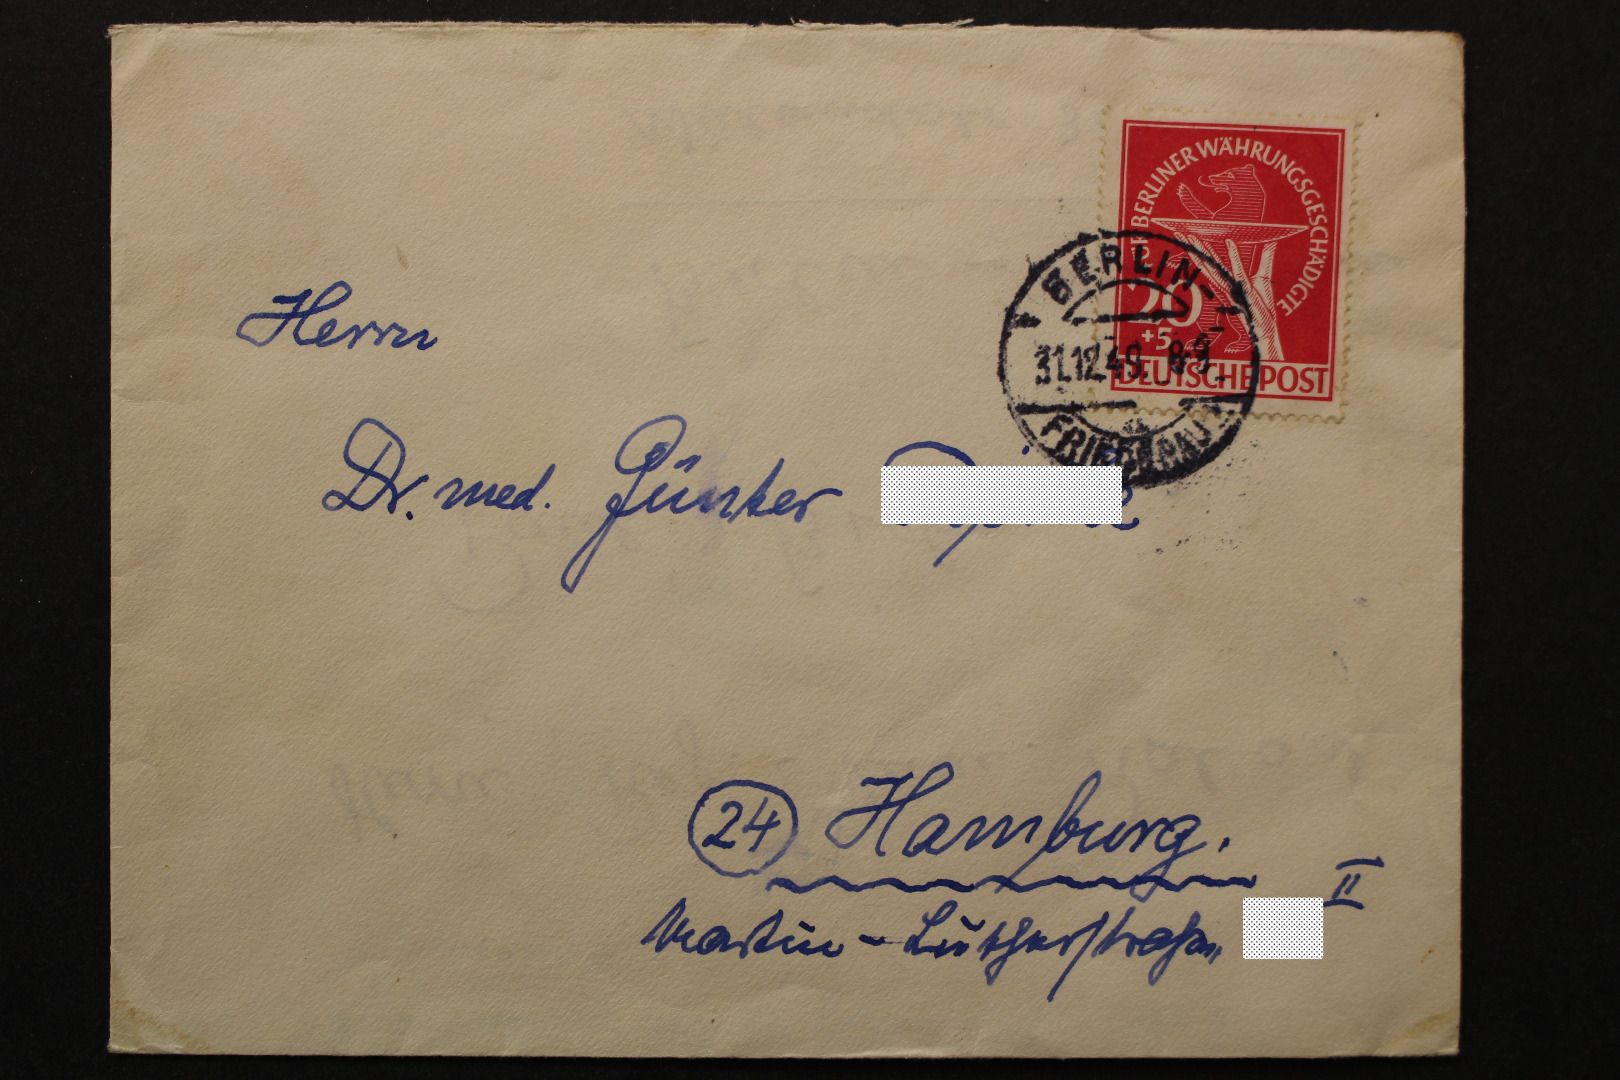 F. BERLINER WÄHRUNGSGESCHÄDIGTE
20
+5
DEUTSCHE POST
BERLIN-
31.12.49. 8-9
FRIEDENAU
Herrn
Dr. med. Günter
24 Hamburg.
II
Martin-Lutherstraße